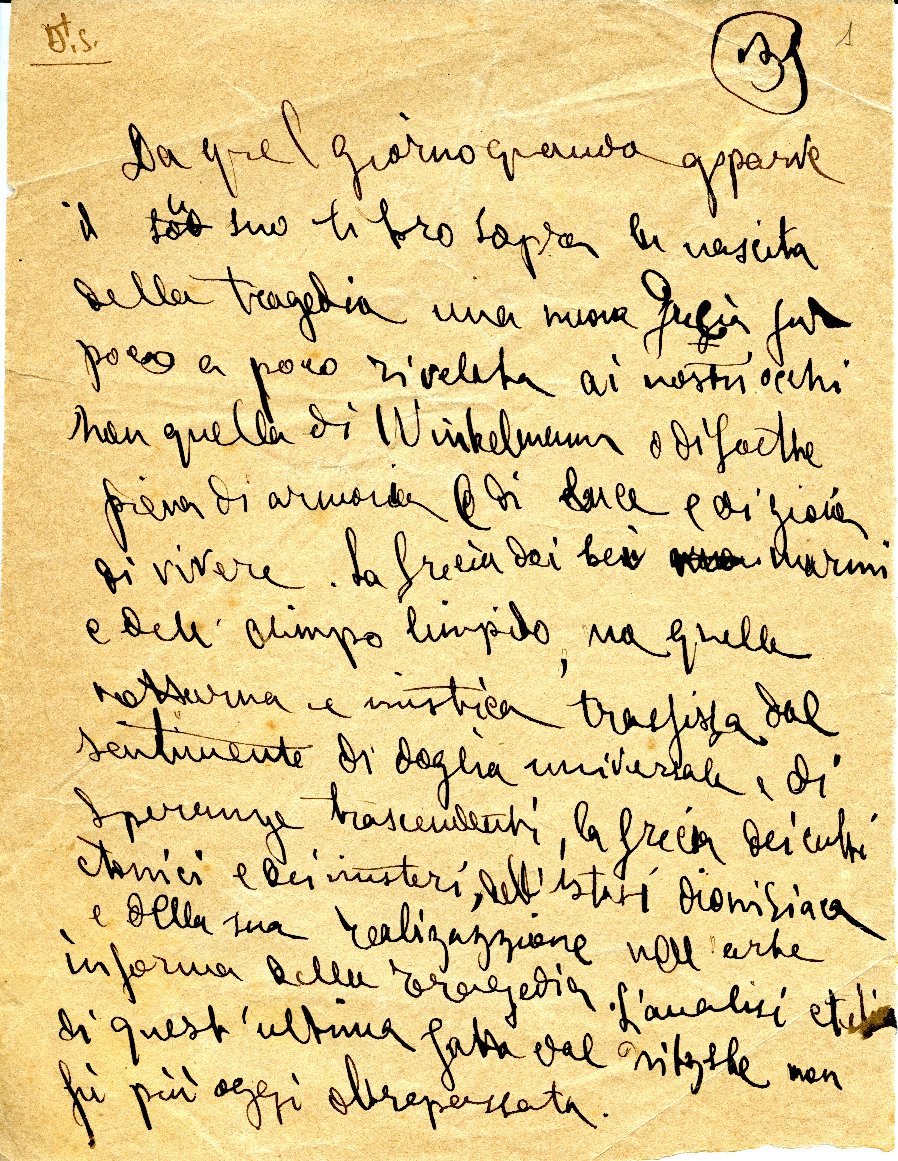 1
Da quel giorno quando apparve
il suo libro sopra la nascita
della tragedia una nuova Grecia fu
poco a poco rivelata ai nostri occhi
non quella di Winkelmann o di Goethe
piena di armonia e di luce e di gioia
di vivere. La Grecia dei bei marmi
e dell' olimpo limpido, ma quella
notturna e mistica trasfissa dal
sentimento di doglia universale e di
speranze trascendenti, la Grecia dei culti
ctonici e dei misteri, dell'estasi dionisiaca
e della sua realizazzione nell'arte
in forma della tragedia. L'analisi
di quest'ultima fatta dal Nitzshe non
fù più oggi oltrepassata.